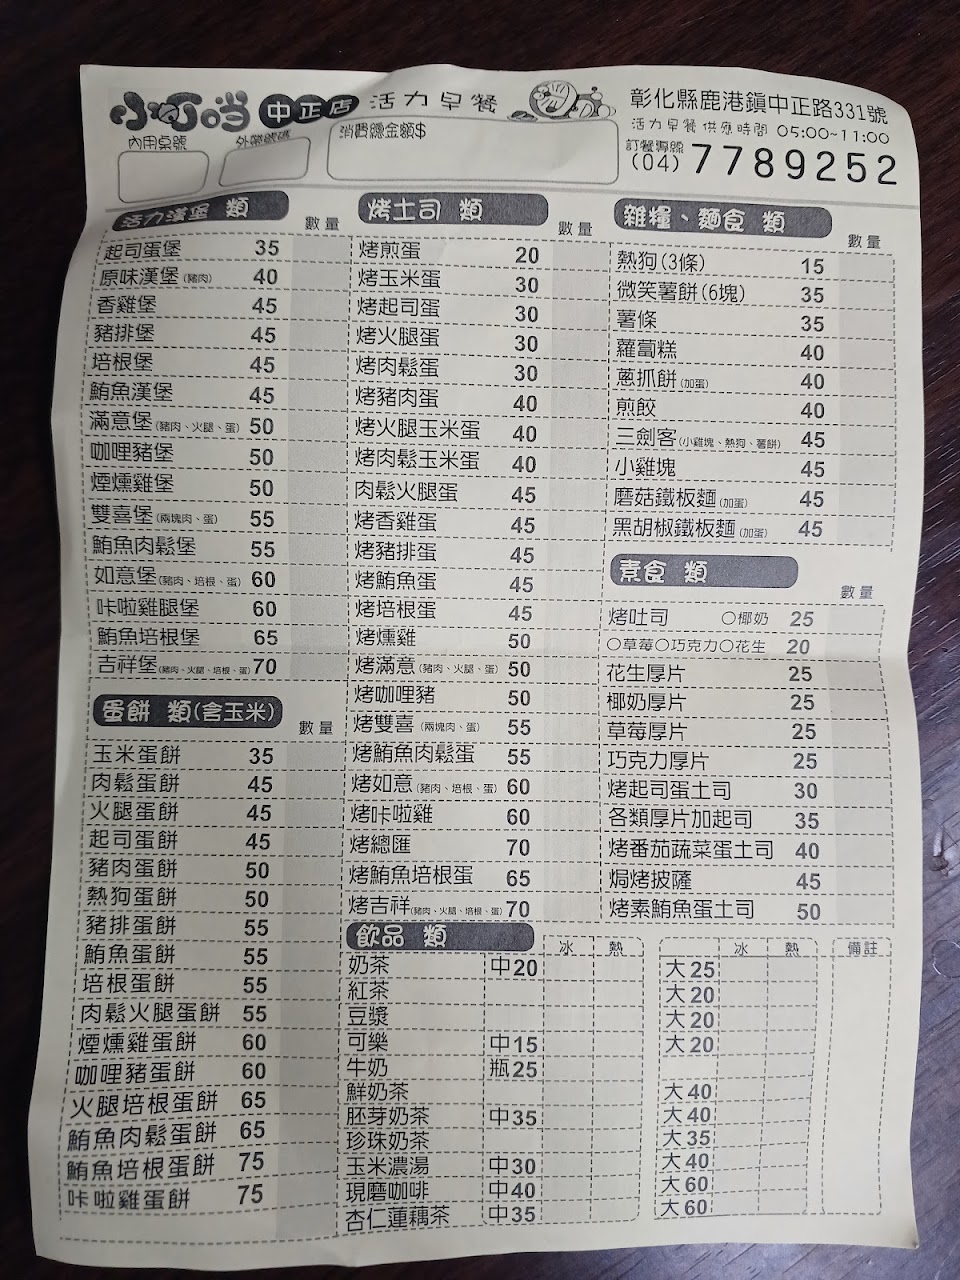 小叮噹 中正店 活力早餐
彰化縣鹿港鎮中正路331號
活力早餐供應時間 05:00~11:00
訂餐專線
(04) 7789252
內用桌號
外帶號碼
消費總金額$
活力漢堡 類 數量
起司蛋堡 35
原味漢堡(豬肉) 40
香雞堡 45
豬排堡 45
培根堡 45
鮪魚漢堡 45
滿意堡(豬肉、火腿、蛋) 50
咖哩豬堡 50
煙燻雞堡 50
雙喜堡(兩塊肉、蛋) 55
鮪魚肉鬆堡 55
如意堡(豬肉、培根、蛋) 60
咔啦雞腿堡 60
鮪魚培根堡 65
吉祥堡(豬肉、火腿、培根、蛋) 70
蛋餅 類(含玉米) 數量
玉米蛋餅 35
肉鬆蛋餅 45
火腿蛋餅 45
起司蛋餅 45
豬肉蛋餅 50
熱狗蛋餅 50
豬排蛋餅 55
鮪魚蛋餅 55
培根蛋餅 55
肉鬆火腿蛋餅 55
煙燻雞蛋餅 60
咖哩豬蛋餅 60
火腿培根蛋餅 65
鮪魚肉鬆蛋餅 65
鮪魚培根蛋餅 75
咔啦雞蛋餅 75
烤土司 類 數量
烤煎蛋 20
烤玉米蛋 30
烤起司蛋 30
烤火腿蛋 30
烤肉鬆蛋 30
烤豬肉蛋 40
烤火腿玉米蛋 40
烤肉鬆玉米蛋 40
肉鬆火腿蛋 45
烤香雞蛋 45
烤豬排蛋 45
烤鮪魚蛋 45
烤培根蛋 45
烤燻雞 50
烤滿意(豬肉、火腿、蛋) 50
烤咖哩豬 50
烤雙喜(兩塊肉、蛋) 55
烤鮪魚肉鬆蛋 55
烤如意(豬肉、培根、蛋) 60
烤咔啦雞 60
烤總匯 70
烤鮪魚培根蛋 65
烤吉祥(豬肉、火腿、培根、蛋) 70
雜糧、麵食 類 數量
熱狗(3條) 15
微笑薯餅(6塊) 35
薯條 35
蘿蔔糕 40
蔥抓餅(加蛋) 40
煎餃 40
三劍客(小雞塊、熱狗、薯餅) 45
小雞塊 45
磨菇鐵板麵(加蛋) 45
黑胡椒鐵板麵(加蛋) 45
素食 類 數量
烤吐司 ○椰奶 25
○草莓○巧克力○花生 20
花生厚片 25
椰奶厚片 25
草莓厚片 25
巧克力厚片 25
烤起司蛋土司 30
各類厚片加起司 35
烤番茄蔬菜蛋土司 40
焗烤披薩 45
烤素鮪魚蛋土司 50
飲品 類 冰 熱 冰 熱 備註
奶茶 中20 大25
紅茶 大20
豆漿 大20
可樂 中15 大20
牛奶 瓶25
鮮奶茶 大40
胚芽奶茶 中35 大40
珍珠奶茶 大35
玉米濃湯 中30 大40
現磨咖啡 中40 大60
杏仁蓮藕茶 中35 大60